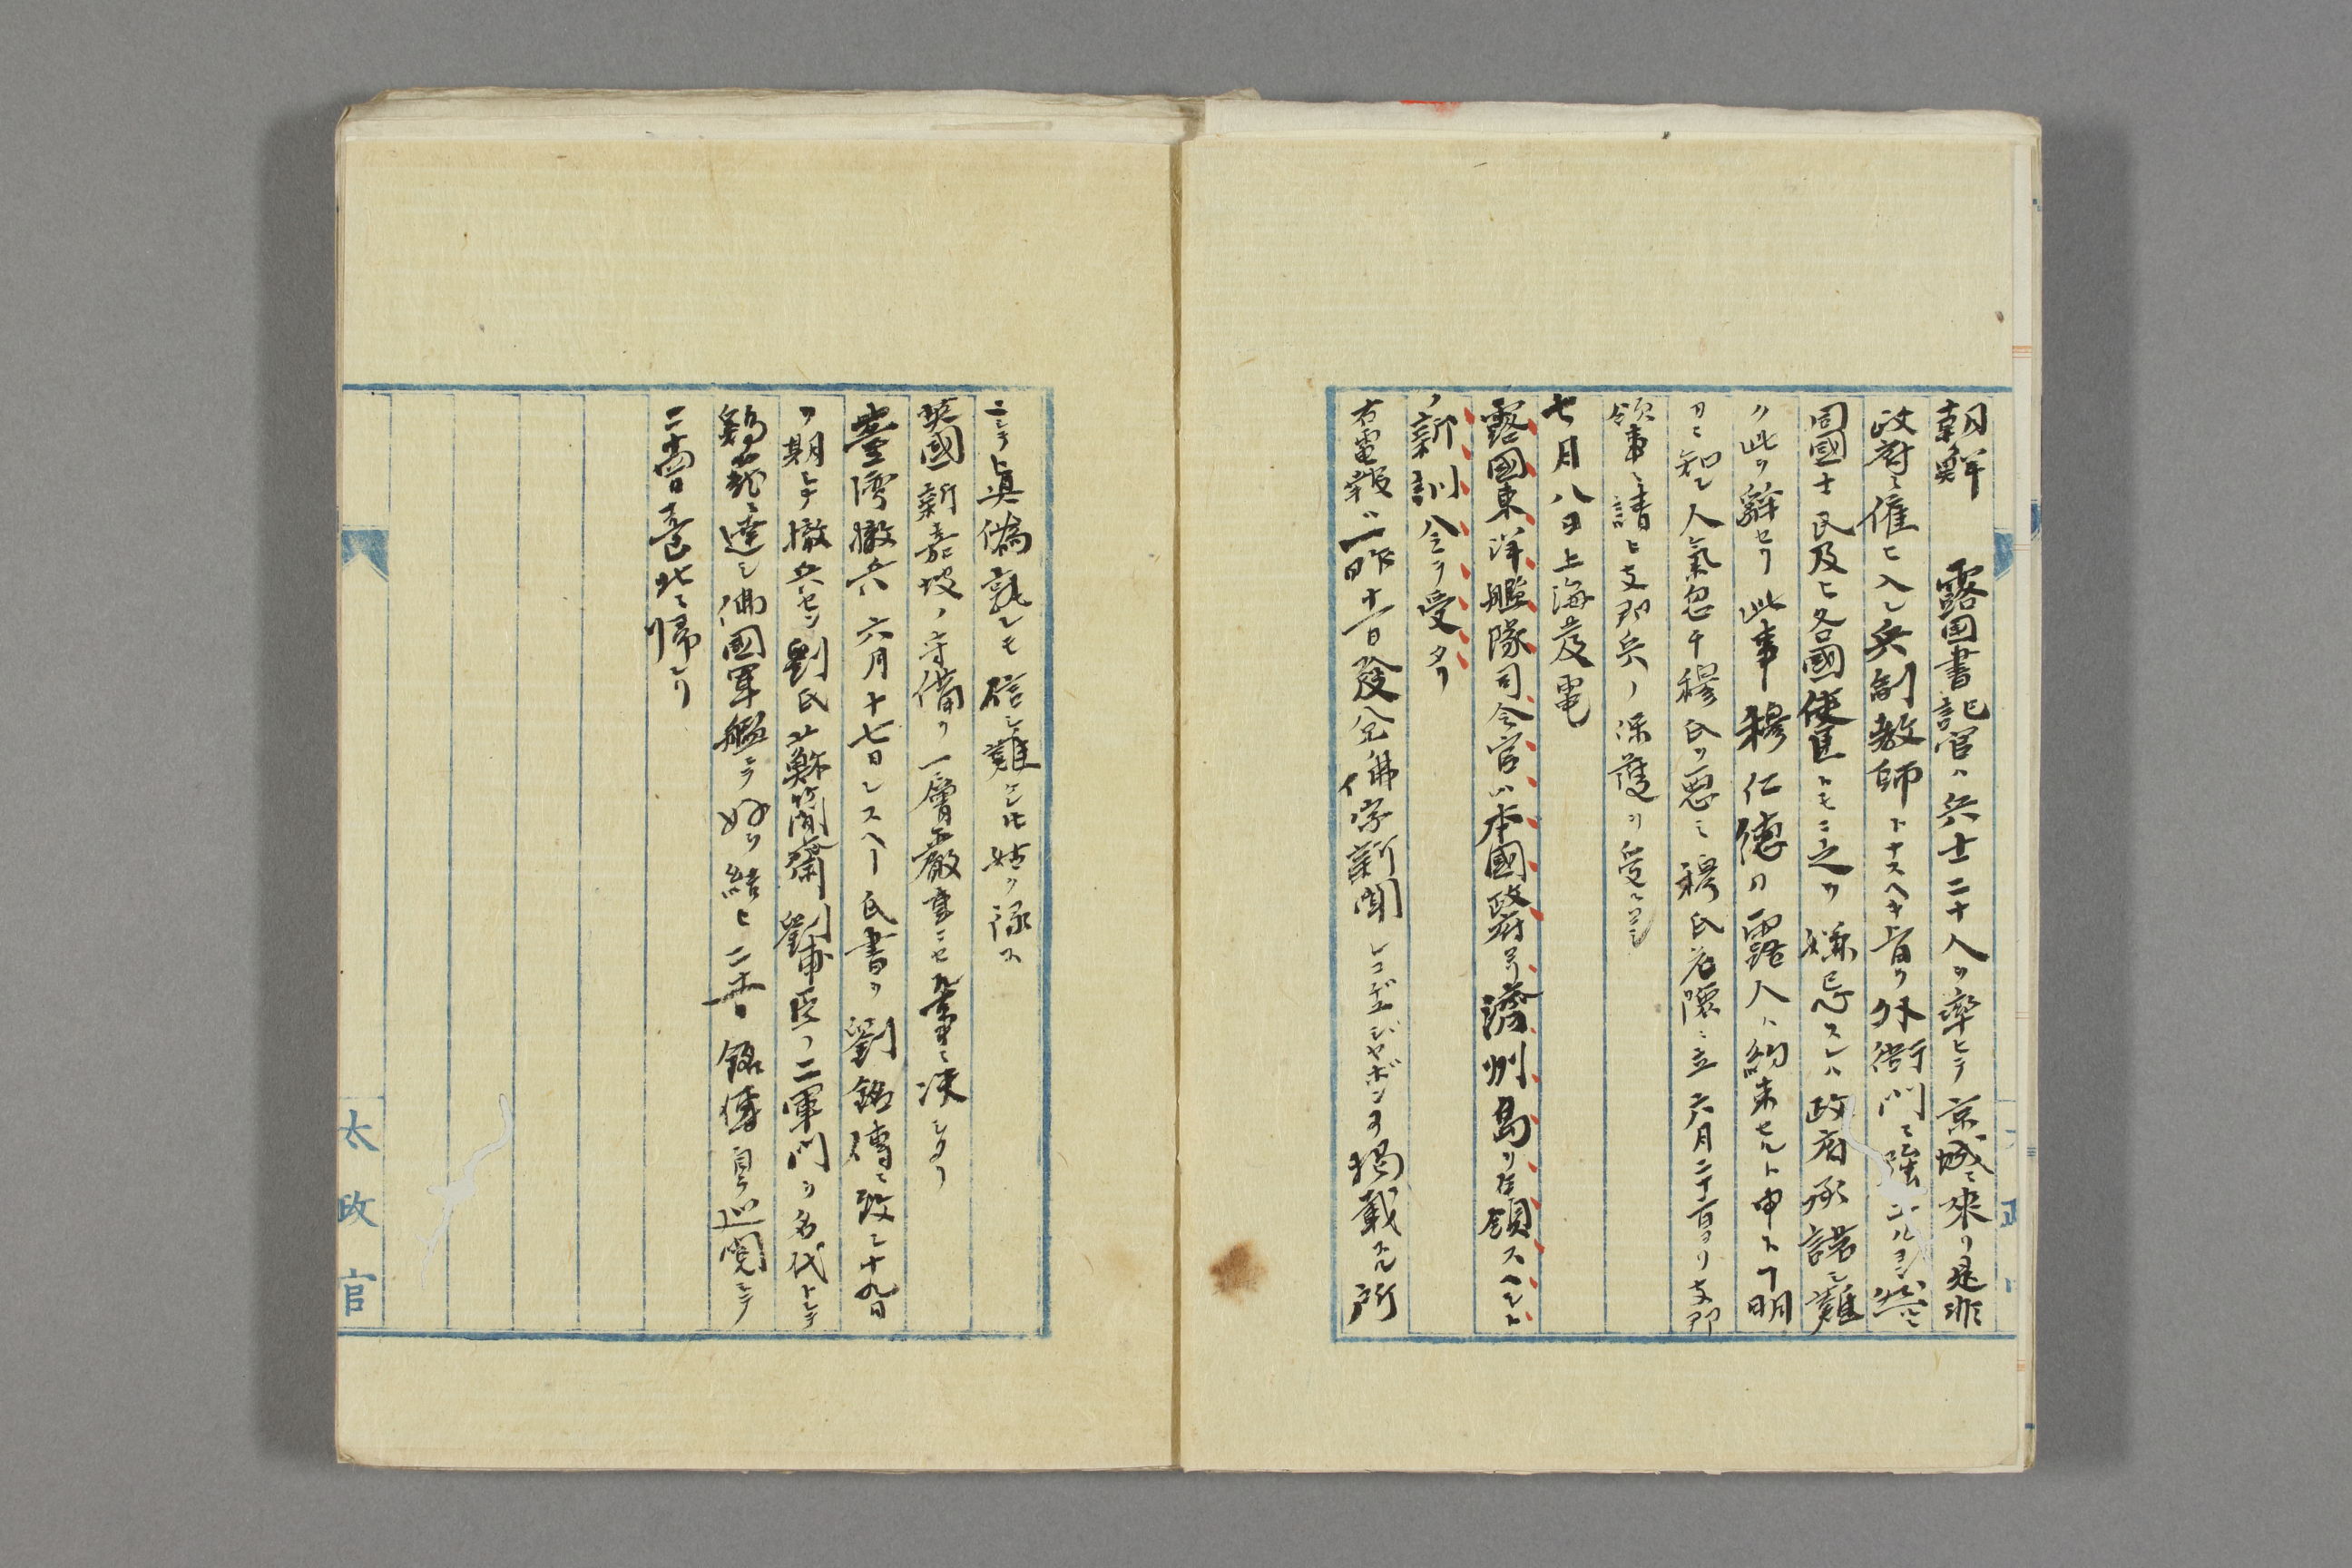 朝鮮　露国書記官ハ兵士二十人ヲ率ヒテ京城ニ來リ是非
政府ニ雇ヒ入レ兵制教師トナスヘキ旨ヲ外衙門ニ強ユルヨシ然ルニ
同國士民及ヒ各國使臣トモニ之ヲ嫌忌スレハ政府承諾シ難
ク此ヲ辭セリ此事穆仁徳カ露人ニ約束セルト申ス丁明
カニ知レ人氣忽チ穆氏ヲ悪ミ穆氏危隈ニ立六月二十一日ヨリ支那
領事ニ請ヒ支那兵ノ保護ヲ受ルヨシ
七月八日上海発電
露國東洋艦隊司令官ハ本國政府ヨリ濟州島ヲ占領スヘシト
ノ新訓令ヲ受タリ
右電報ハ一昨十一日發兌佛字新聞レコデュジャポンヨリ掲載スル所
ニシテ眞偽孰レモ信シ難ケレ𪜈姑ク録ス
英國新嘉坡ノ守備ヲ一層嚴重ニセ
臺湾撤兵　六月十七日レスヘー氏書ヲ劉銘傳ニ致シ十九日
ヲ期シテ撤兵セン劉氏ハ蘇簡齋劉甫臣ノ二軍門ヲ名代トシテ
鷄籠ニ達シ佛國軍艦ニテ好ヲ結ヒ二十一日銘傳自ラ巡閲シテ
二十四日臺北ニ帰レリ
太政官